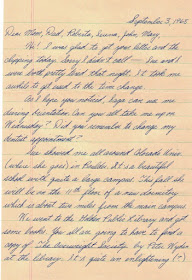 September 3, 1965
Dear Mom, Dad, Roberta, Donna, John, Mary,
Hi! I was glad to get your letter and the
clipping today. Sorry I didn't call — Sue and I
were both pretty tired that night. It took me
awhile to get used to the time change.
As I hope you noticed, Papa can see me
during orientation. Can you all take me up on
Wednesday? Did you remember to change my
dentist appointment?
Sue showed me all around Colorado Univ.
(where she goes) in Boulder. It is a beautiful
school with quite a large campus. This fall she
will be on the 11th floor of a new dormitory
which is about two miles from the main campus.
We went to the Holden Public Library and got
some books. You all are going to have to find a
copy of The Innerweight Society by Peter Wyden
at the library. It's quite an enlightening (?)